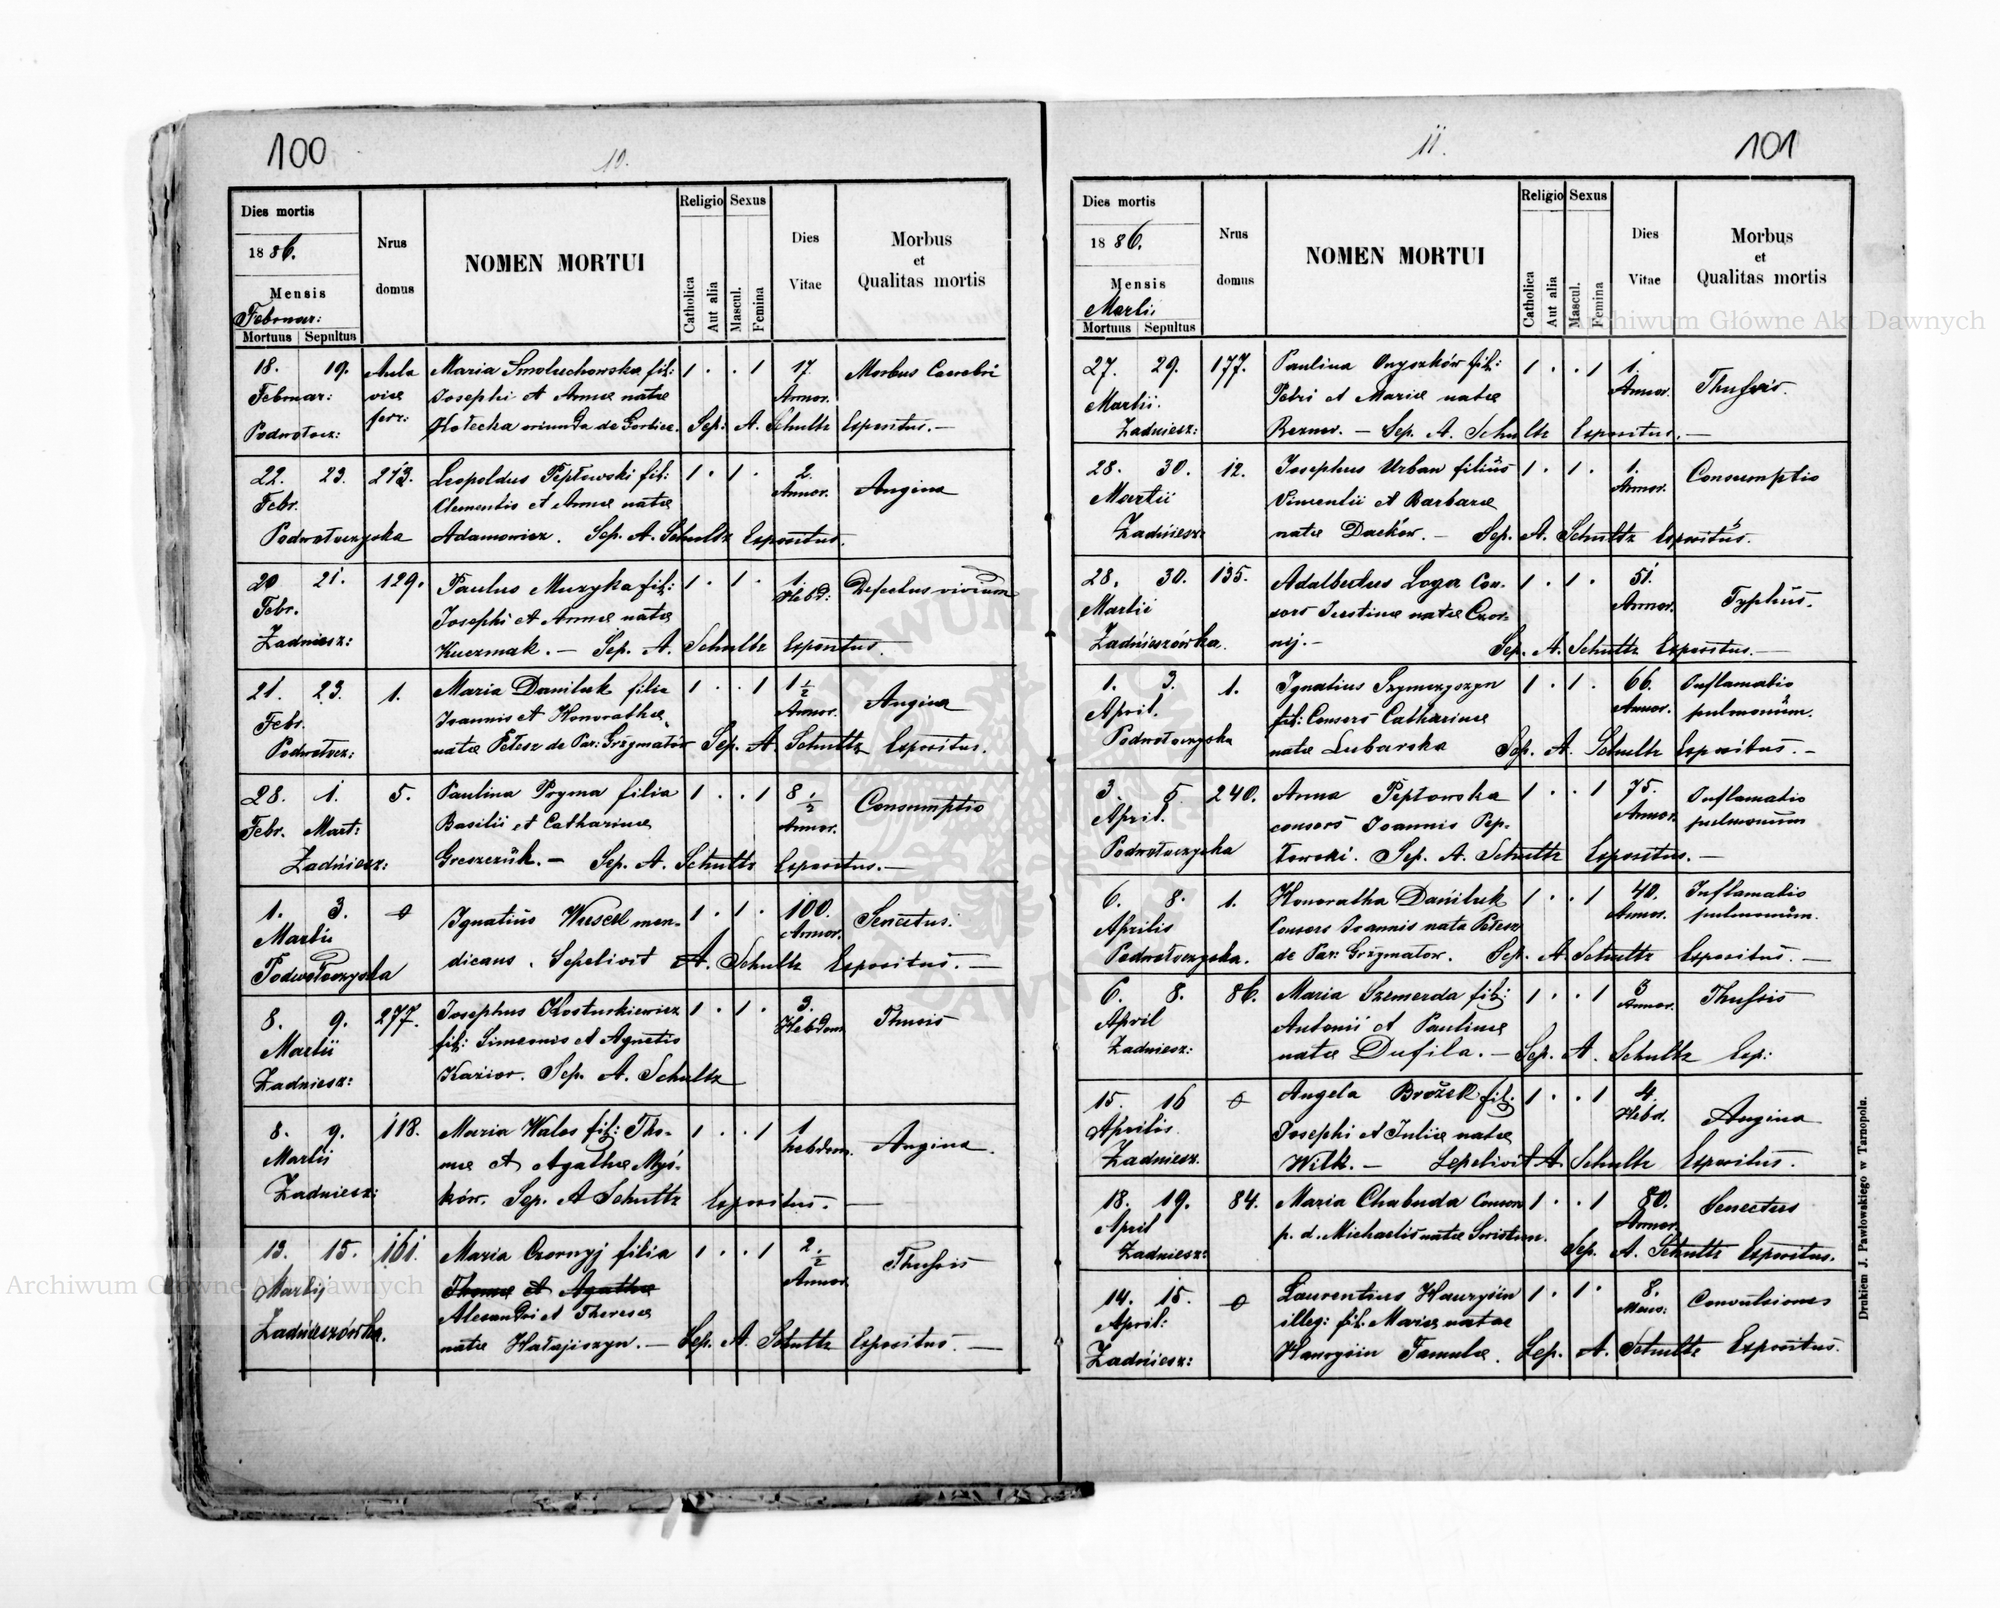 100
10.
Dies mortis
1886.
Mensis
Februar:
Mortuus Sepultus
Nrus
domus
NOMEN MORTUI
Religio
Catholica
Aut alia
Sexus
Mascul.
Femina
Dies
Vitae
Morbus
et
Qualitas mortis
18. 19. Aula Maria Smoluchowska fil: 1 . . 1 17 Morbus Cerebri
Februar: Josephi et Annae natae Annor.
Podwołocz: Hołecka oriunda de Gorlice. Sep: A. Schultz Expositus.—
22. 23. 273. Leopoldus Peptowski fil: 1 . 1 . 2. Angina
Febr. Clementis et Annae natae Annor.
Podwołoczyska Adamowicz. Sep. A. Schultz Expositus.
20 21. 129. Paulus Muzyka fil: 1 . 1 . 1 Defectus virium
Febr. Josephi et Annae natae Hebd:
Zadniesz: Kuczmak. — Sep. A. Schultz Expositus.
21. 23. 1. Maria Daniluk filia 1 . . 1 1 1/2 Angina
Febr. Joannis et Honorathae Annor.
Podwołocz: natae Petesz de Par: Grzymałów Sep. A. Schultz Expositus.
28. 1. 5. Paulina Pryma filia 1 . . 1 8 1/2 Consumptio
Febr. Mart: Basilii et Catharinae Annor.
Zadniesz: Greszczuk. — Sep. A. Schultz Expositus.—
1. 3. Ignatius Wessel men- 1 . 1 . 100. Senectus.
Martii Annor.
Podwołoczyska dicans. Sepelivit A. Schultz Expositus. —
8. 9. 277. Josephus Kosturkiewicz 1 . 1 . 3. Thussis
Martii fil: Simeonis et Agnetis Hebdom.
Zadniesz: Kazior. Sep. A. Schultz
8. 9. 118. Maria Walos fil: Tho- 1 . . 1 1 Angina.
Martii mae et Agathae Myś- hebdom.
Zadniesz: ków. Sep. A Schultz Expositus. —
13. 15. 161. Maria Czornyj filia 1 . . 1 2 1/2 Thussis
Martij Thomae et Agathae Annor.
Alexandri et Theresae
Zadnieszówka. natae Hałajiszyn. — Sep. A. Schultz Expositus. —
11. 101
Dies mortis
1886.
Mensis
Martii
Mortuus Sepultus
Nrus
domus
NOMEN MORTUI
Religio
Catholica
Aut alia
Sexus
Mascul.
Femina
Dies
Vitae
Morbus
et
Qualitas mortis
27. 29. 177. Paulina Onyszków fil: 1 . . 1 1. Thussis.
Martii. Petri et Mariae natae Annor.
Zadniesz: Reznor. — Sep. A. Schultz Expositus.—
28. 30. 12. Josephus Urban filius 1 . 1 . 1. Consumptio
Martii Vincentii et Barbarae Annor.
Zadniesz: natae Dacków. — Sep. A. Schultz Expositus.
28. 30. 135. Adalbertus Loga Con- 1 . 1 . 51. Typhus.
Martii sors Justinae natae Czor- Annor.
Zadnieszówka. nij. — Sep. A. Schultz Expositus.—
1. 3. 1. Ignatius Szymczyszyn 1 . 1 . 66. Inflamatio
April. fil: Consors Catharinae Annor. pulmonum.
Podwołoczyska natae Lubarska Sep. A. Schultz Expositus. —
3. 5. 240. Anna Peptowska 1 . . 1 75. Inflamatio
April. consors Joannis Pep- Annor. pulmonum
Podwołoczyska towski. Sep. A. Schultz Expositus. —
6. 8. 1. Honoratha Daniluk 1 . . 1 40. Inflamatio
Aprilis Consors Joannis nata Petesz Annor. pulmonum.
Podwołoczyska. de Par: Grzymałow. Sep. A. Schultz Expositus. —
6. 8. 86. Maria Szemerda fil: 1 . . 1 3 Thussis
April Antonii et Paulinae Annor.
Zadniesz: natae Dufila. — Sep. A. Schultz Exp:
15. 16 Angela Brożek fil: 1 . . 1 4. Angina
Aprilis Josephi et Juliae natae Hebd.
Zadniesz. Wilk. — Sepelivit A. Schultz Expositus.
18. 19. 84. Maria Chabuda Consor 1 . . 1 80. Senectus
April p. d. Michaelis natae Annor.
Zadniesz: Sep. A. Schultz Expositus.
14. 15. Laurentius Hawrysin 1 . 1 . 8. Convulsiones
April: illeg: fil: Mariae natae Mens:
Zadniesz: Hawrysin Famulae. Sep. A. Schultz Expositus.
Drukiem J. Pawłowskiego w Tarnopolu.
Archiwum Główne Akt Dawnych
Archiwum Główne Akt Dawnych